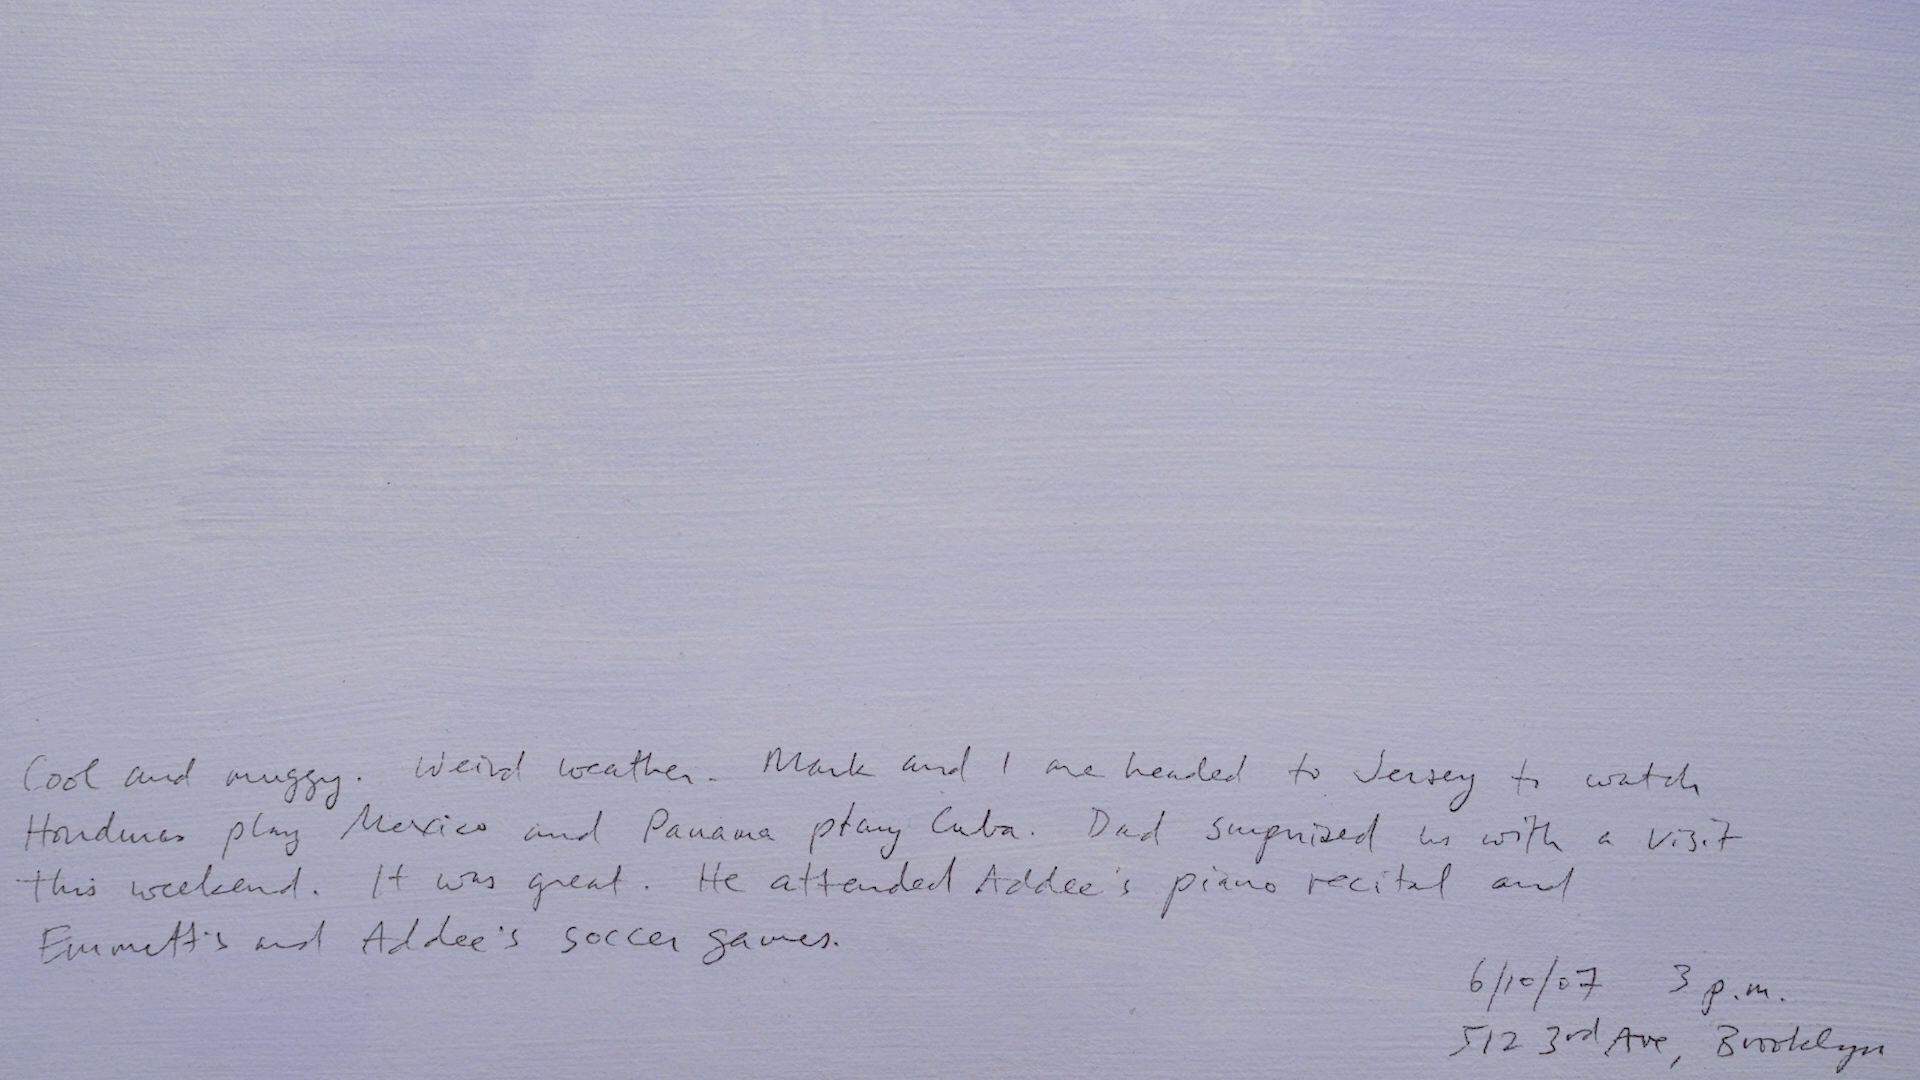 Cool and muggy. Weird weather. Mark and I are headed to Jersey to watch
Honduras play Mexico and Panama play Cuba. Dad surprized us with a visit
this weekend. It was great. He attended Addee's piano recital and
Emmett's and Addee's soccer games.
6/10/07 3 p.m.
512 3rd Ave, Brooklyn